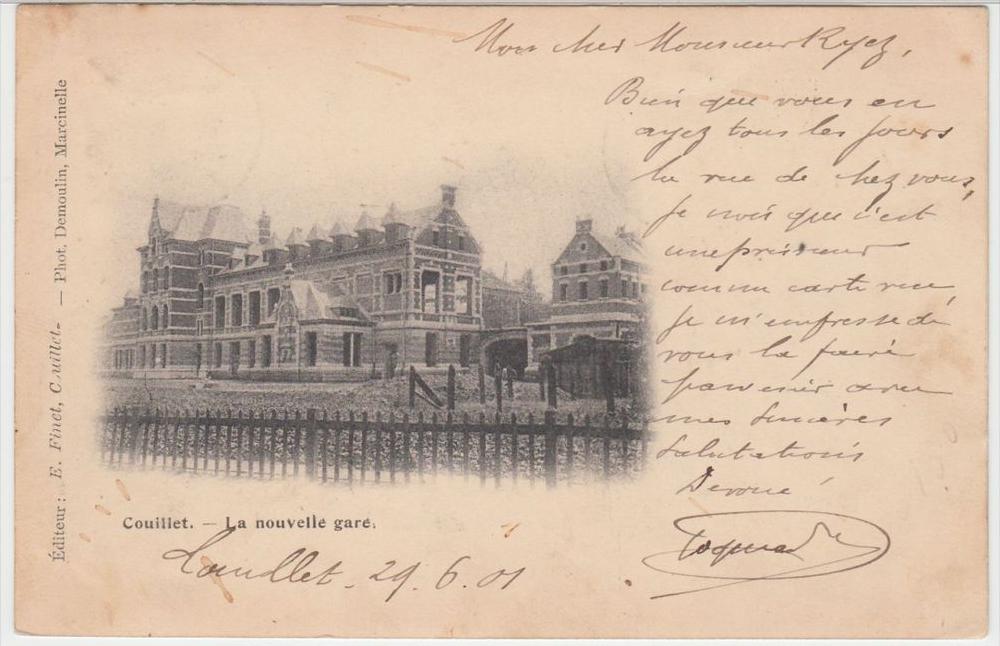 Mon cher Monsieur Rycz,
Bien que vous en
ayez tous les jours
la vue de chez vous,
Je vois que c'est
une primeur
comme carte vue,
Je m'empresse de
vous la faire
parvenir avec
mes sincères
Salutations
Dévoué
Couillet. — La nouvelle gare.
Couillet - 29.6.01
Éditeur: E. Finet, Couillet. — Phot. Demoulin, Marcinelle